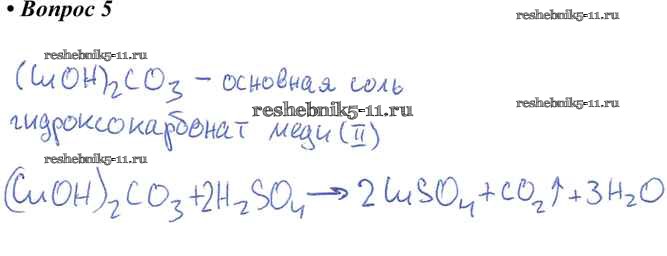 • Вопрос 5
reshebnik5-11.ru
reshebnik5-11.ru
(CuOH)₂CO₃ – основная соль
reshebnik5-11.ru
гидроксокарбонат меди (II)
reshebnik5-11.ru
reshebnik5-11.ru
(CuOH)₂CO₃+2H₂SO₄→2CuSO₄+CO₂↑+3H₂O